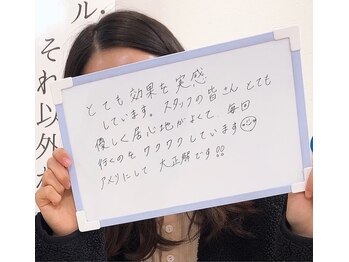 ル.
それ以外
とても効果を実感
しています。スタッフの皆さんとても
優しく居心地がよくて、毎回
行くのをワクワクしています
アメリにして大正解です!!